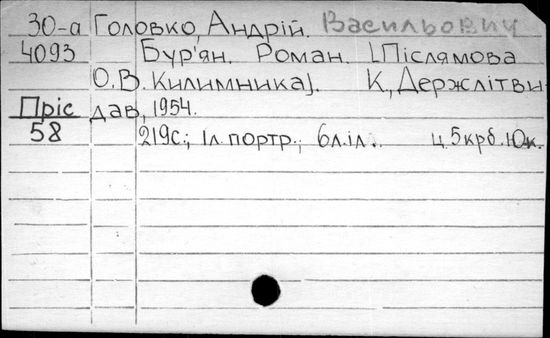 30-а Головко, Андрій. Васильович
4093 Бур'ян. Роман. [Післямова
О.В. Килимника]. К., Держлітви-
Пріс дав, 1954.
58 219с.; 1л. портр.; 6л.іл. ц. 5крб. 10к.